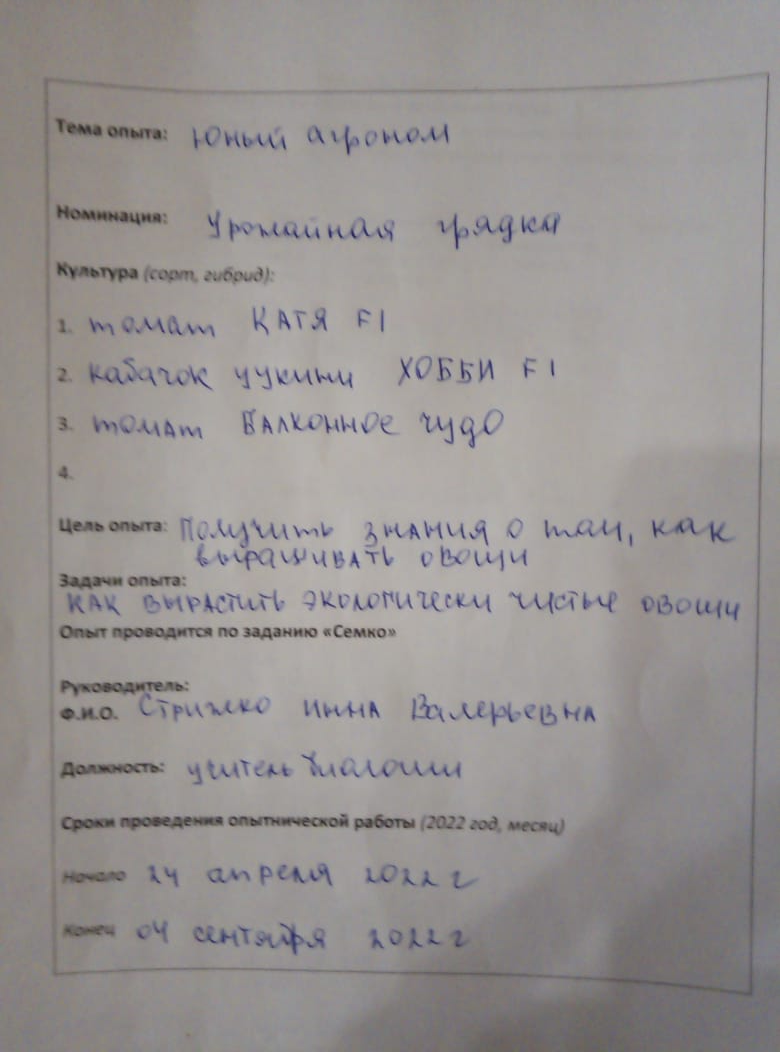 Тема опыта: Юный агроном
Номинация: Урожайная грядка
Культура (сорт, гибрид):
1. томат КАТЯ F1
2. кабачок цукини ХОББИ F1
3. томат Балконное чудо
4.
Цель опыта: Получить знания о том, как
выращивать овощи
Задачи опыта:
как вырастить экологически чистые овощи
Опыт проводится по заданию «Семко»
Руководитель:
Ф.И.О. Стрижко Инна Валерьевна
Должность: учитель биологии
Сроки проведения опытнической работы (2022 год, месяц)
Начало 24 апреля 2022 г
Конец 04 сентября 2022 г